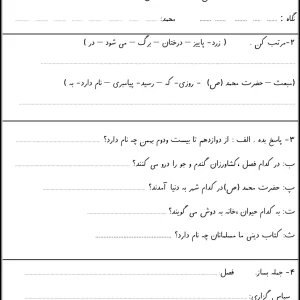 گاه : ........ ........ ........ محمد: ........
۲-مرتب کن . ( زرد- پاییز – درختان – برگ – می شود – در )
(مبعث – حضرت محمد (ص) - روزی- که – رسید- پیامبری – نام دارد- به )
۳- پاسخ بده . الف : از دوازدهم تا بیست ودوم بهمن چه نام دارد؟
ب: در کدام فصل ،کشاورزان گندم و جو را درو می کنند؟
پ: حضرت محمد (ص)در کدام شهر به دنیا آمدند؟
ت: به کدام حیوان ،خانه به دوش می گویند؟
ث: کتاب دینی ما مسلمانان چه نام دارد؟
۴- جمله بساز. فصل:
سپاس گزاری: